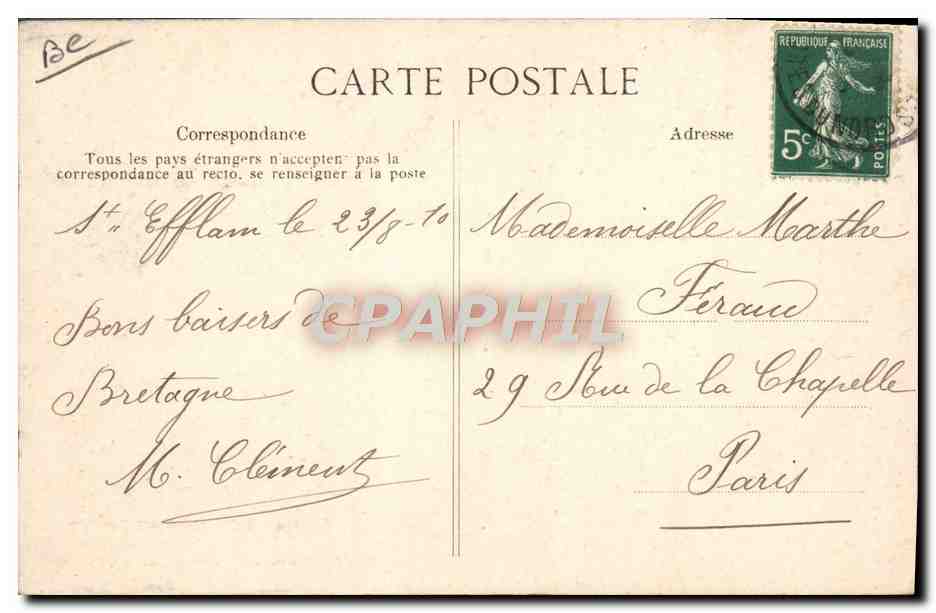 Be
CARTE POSTALE
RÉPUBLIQUE FRANÇAISE
5c
POSTES
Correspondance
Tous les pays étrangers n'accepten: pas la
correspondance au recto, se renseigner à la poste
Adresse
St Efflam le 23/8-10
Bons baisers de
Bretagne
M. Clément
Mademoiselle Marthe
Féraud
29 Rue de la Chapelle
Paris
CPAPHIL